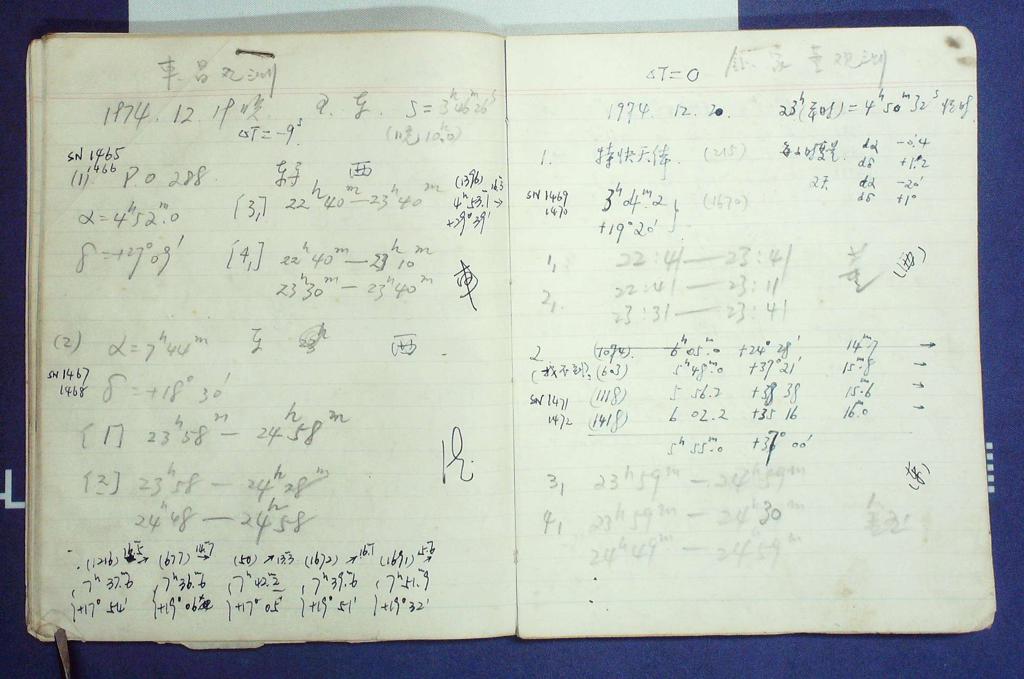 車 昌 观测
1974. 12. 19晚
S = 3ʰ46ᵐ26ˢ
ΔT = -9ˢ
SN 1465
1466
(1) P.O 288 西
α = 4ʰ52ᵐ.0 [3,] 22ʰ40ᵐ — 23ʰ40ᵐ
(1396)
4ʰ53.1 →
+29°39′
δ = +27°09′ [4,] 22ʰ40ᵐ — 23ʰ10ᵐ
23ʰ30ᵐ — 23ʰ40ᵐ
(2) α = 7ʰ44ᵐ 西
SN 1467
1468
δ = +18°30′
[1] 23ʰ58ᵐ — 24ʰ58ᵐ
[2] 23ʰ58 — 24ʰ28ᵐ
24ʰ48 — 24ʰ58
(1216) → (677) 14.7 → (50) → 13.3 (1672) → 16.1 (1691) 15.6 →
7ʰ37ᵐ.6 7ʰ36ᵐ.6 7ʰ42ᵐ.2 7ʰ39ᵐ.6 7ʰ51ᵐ.9
+17°54′ +19°06′ +17°05′ +19°51′ +19°32′
观测
ΔT = 0
1974. 12. 20 23ʰ = 4ʰ50ᵐ32ˢ
1. 特快天体. (215) dα -0.4
dδ +1.2
2天 dα -20′
dδ +1°
SN 1469
1470
3ʰ01ᵐ.2 (1670)
+19°20′
1, 22:41 — 23:41 董 (西)
2, 22:41 — 23:11
23:31 — 23:41
2. (1094) 6ʰ05ᵐ.0 +24°28′ 14ᵐ.7 →
(找不到) (603) 5ʰ48ᵐ.0 +37°21′ 15ᵐ.8 →
SN 1471 (1118) 5 56.2 +38 38 15ᵐ.6 →
1472 (1418) 6 02.2 +35 16 16ᵐ.0 →
5ʰ55ᵐ.0 +37°00′
3, 23ʰ59ᵐ — 24ʰ59ᵐ (东)
4, 23ʰ59ᵐ — 24ʰ30
24ʰ49ᵐ — 24ʰ59ᵐ